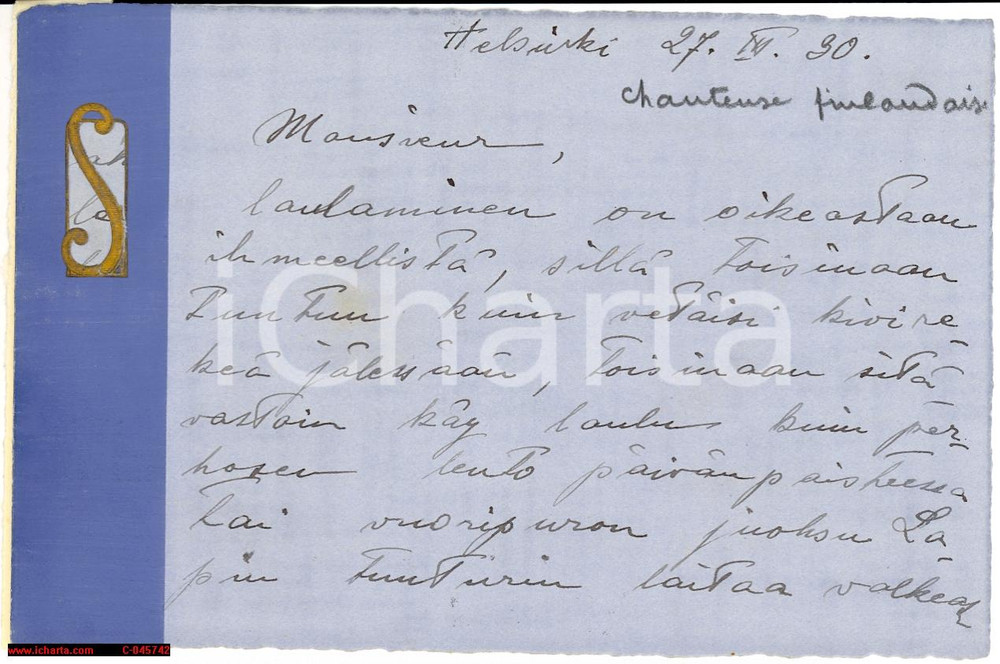 Helsinki 27. III. 30.
chanteuse finlandaise
Monsieur,
laulaminen on oikeastaan
ihmeellistä, sillä toisinaan
tuntuu kuin vetäisi kivire-
keä jälessään, toisinaan sitä
vastoin käy laulu kuin per-
hosen lento päivänpaisteessa
tai vuoripuron juoksu La-
pin tunturin laitaa valkeas-
iCharta
www.icharta.com C-045742